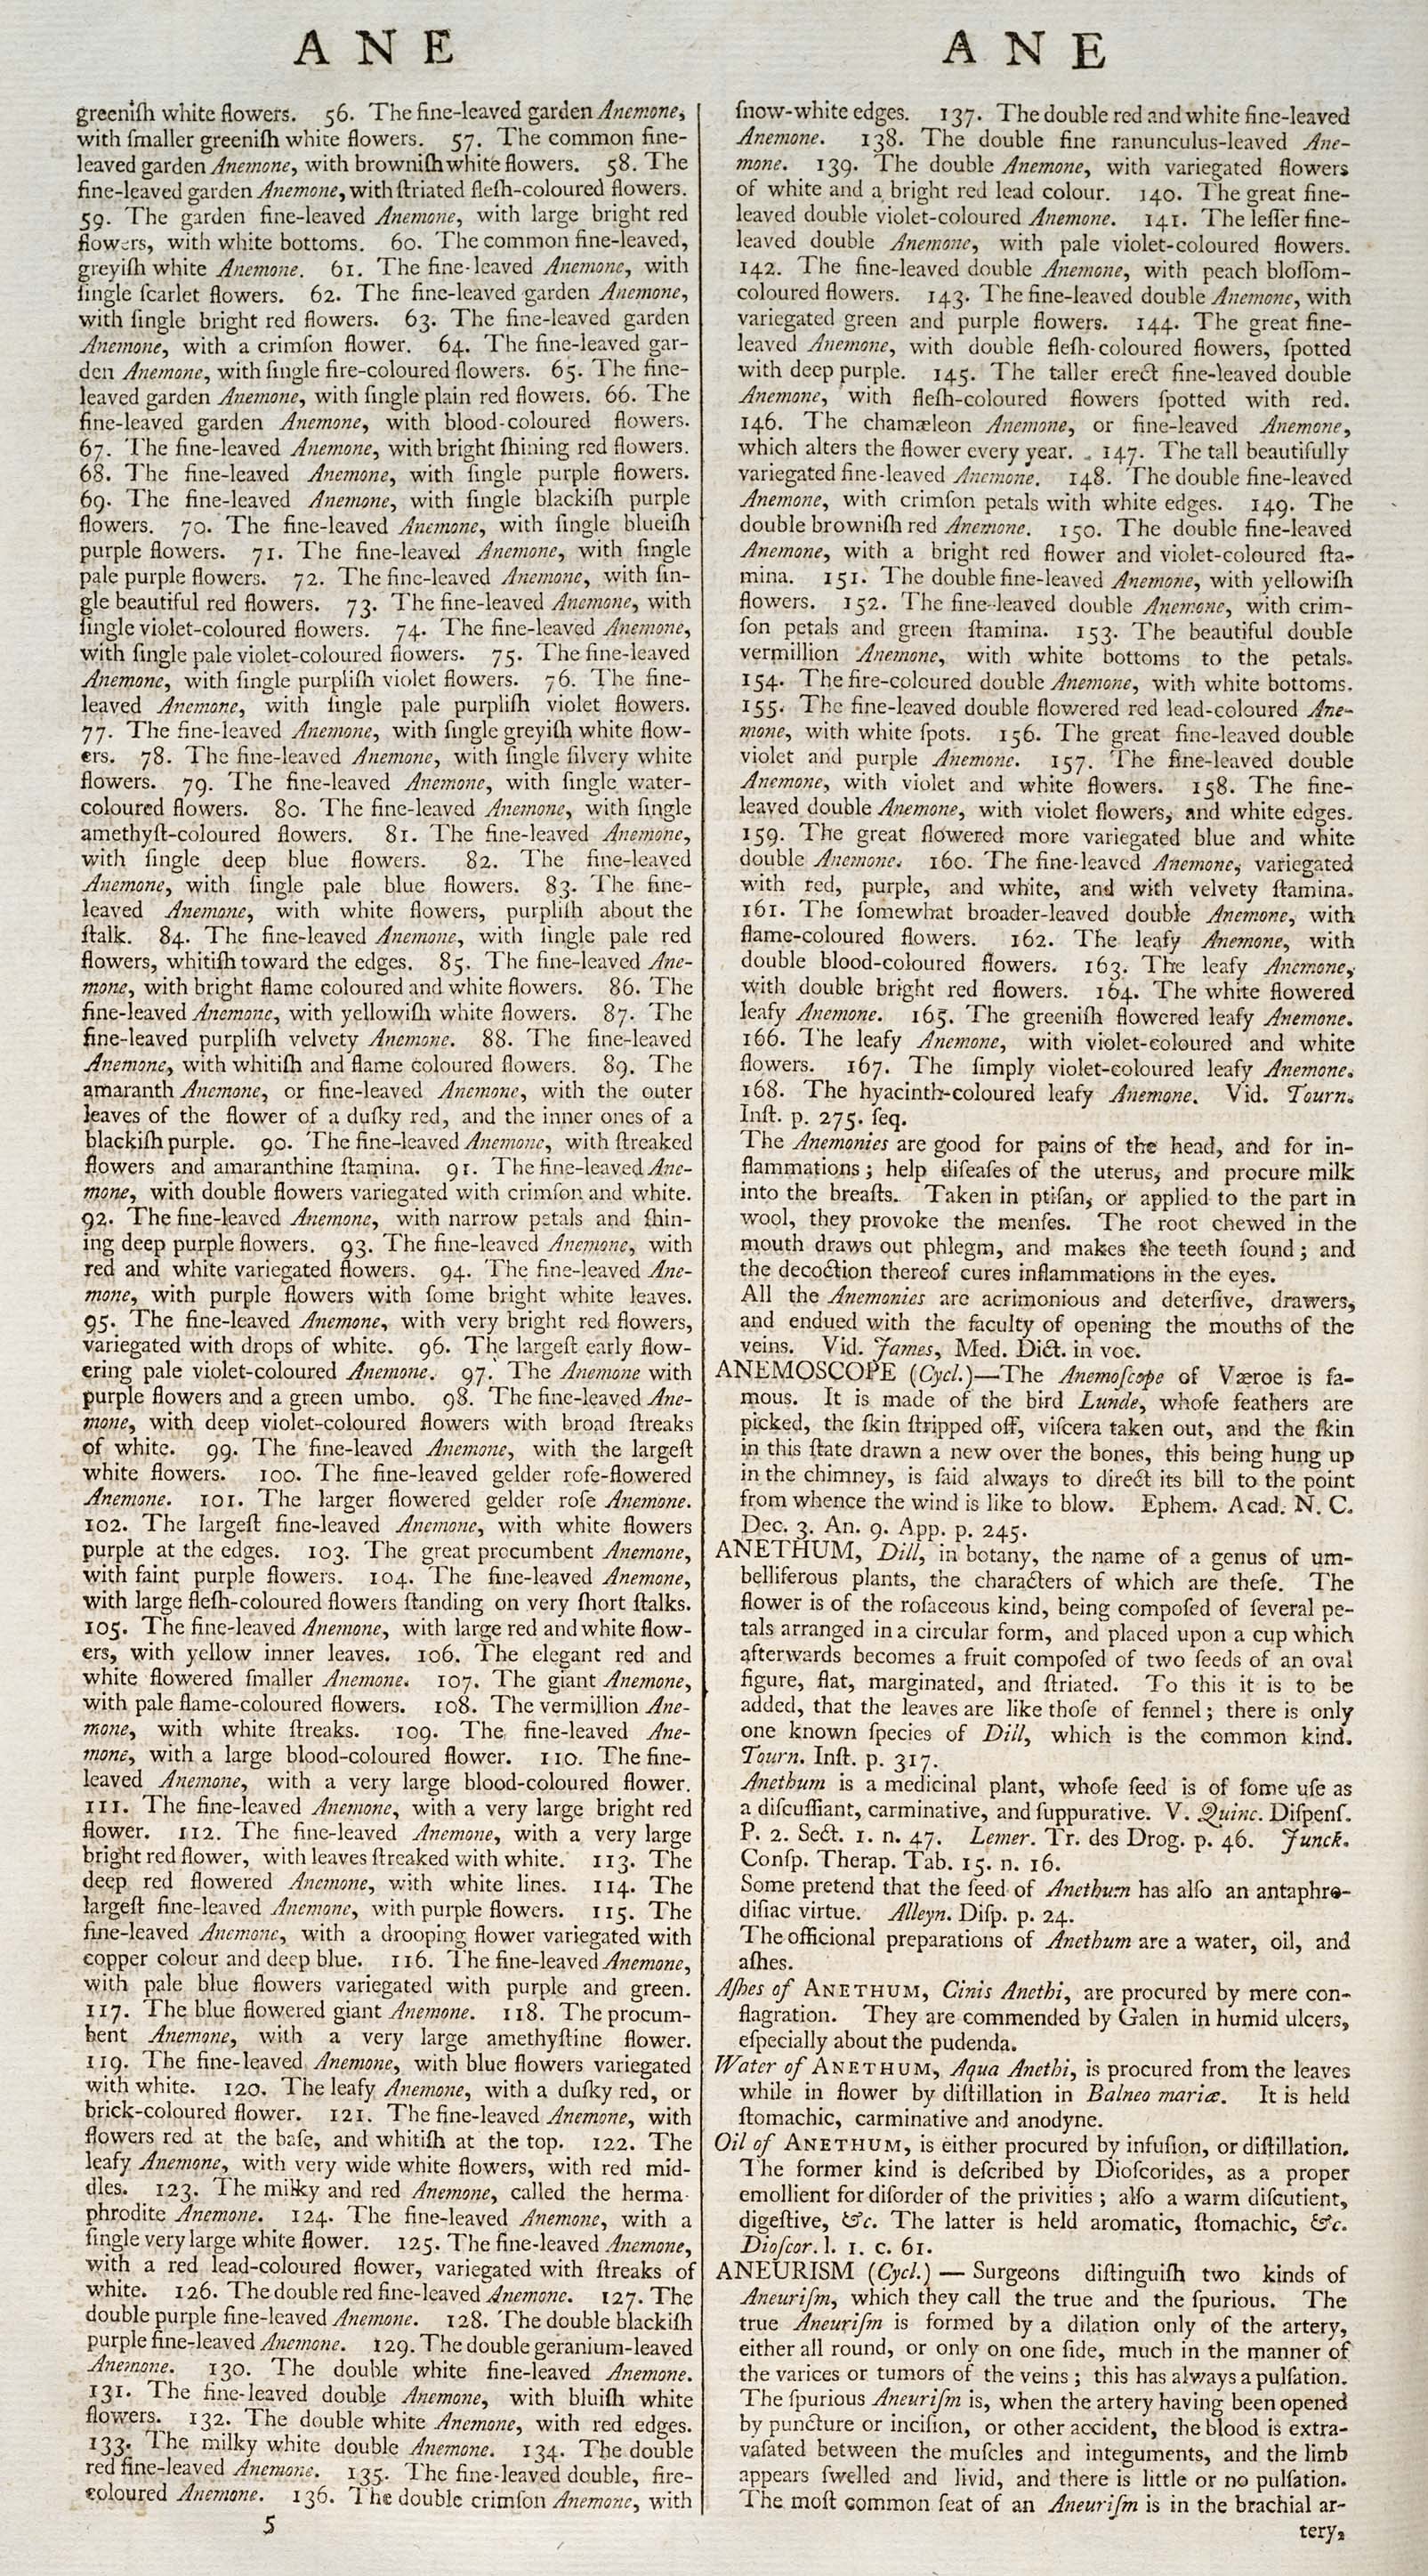 ANE
greeniſh white flowers. 56. The fine-leaved garden Anemone,
with ſmaller greeniſh white flowers. 57. The common fine-
leaved garden Anemone, with browniſh white flowers. 58. The
fine-leaved garden Anemone, with ſtriated fleſh-coloured flowers.
59. The garden fine-leaved Anemone, with large bright red
flowers, with white bottoms. 60. The common fine-leaved,
greyiſh white Anemone. 61. The fine-leaved Anemone, with
ſingle ſcarlet flowers. 62. The fine-leaved garden Anemone,
with ſingle bright red flowers. 63. The fine-leaved garden
Anemone, with a crimſon flower. 64. The fine-leaved gar-
den Anemone, with ſingle fire-coloured flowers. 65. The fine-
leaved garden Anemone, with ſingle plain red flowers. 66. The
fine-leaved garden Anemone, with blood-coloured flowers.
67. The fine-leaved Anemone, with bright ſhining red flowers.
68. The fine-leaved Anemone, with ſingle purple flowers.
69. The fine-leaved Anemone, with ſingle blackiſh purple
flowers. 70. The fine-leaved Anemone, with ſingle blueiſh
purple flowers. 71. The fine-leaved Anemone, with ſingle
pale purple flowers. 72. The fine-leaved Anemone, with ſin-
gle beautiful red flowers. 73. The fine-leaved Anemone, with
ſingle violet-coloured flowers. 74. The fine-leaved Anemone,
with ſingle pale violet-coloured flowers. 75. The fine-leaved
Anemone, with ſingle purpliſh violet flowers. 76. The fine-
leaved Anemone, with ſingle pale purpliſh violet flowers.
77. The fine-leaved Anemone, with ſingle greyiſh white flow-
ers. 78. The fine-leaved Anemone, with ſingle ſilvery white
flowers. 79. The fine-leaved Anemone, with ſingle water-
coloured flowers. 80. The fine-leaved Anemone, with ſingle
amethyſt-coloured flowers. 81. The fine-leaved Anemone,
with ſingle deep blue flowers. 82. The fine-leaved
Anemone, with ſingle pale blue flowers. 83. The fine-
leaved Anemone, with white flowers, purpliſh about the
ſtalk. 84. The fine-leaved Anemone, with ſingle pale red
flowers, whitiſh toward the edges. 85. The fine-leaved Ane-
mone, with bright flame coloured and white flowers. 86. The
fine-leaved Anemone, with yellowiſh white flowers. 87. The
fine-leaved purpliſh velvety Anemone. 88. The fine-leaved
Anemone, with whitiſh and flame coloured flowers. 89. The
amaranth Anemone, or fine-leaved Anemone, with the outer
leaves of the flower of a duſky red, and the inner ones of a
blackiſh purple. 90. The fine-leaved Anemone, with ſtreaked
flowers and amaranthine ſtamina. 91. The fine-leaved Ane-
mone, with double flowers variegated with crimſon and white.
92. The fine-leaved Anemone, with narrow petals and ſhin-
ing deep purple flowers. 93. The fine-leaved Anemone, with
red and white variegated flowers. 94. The fine-leaved Ane-
mone, with purple flowers with ſome bright white leaves.
95. The fine-leaved Anemone, with very bright red flowers,
variegated with drops of white. 96. The largeſt early flow-
ering pale violet-coloured Anemone. 97. The Anemone with
purple flowers and a green umbo. 98. The fine-leaved Ane-
mone, with deep violet-coloured flowers with broad ſtreaks
of white. 99. The fine-leaved Anemone, with the largeſt
white flowers. 100. The fine-leaved gelder roſe-flowered
Anemone. 101. The larger flowered gelder roſe Anemone.
102. The largeſt fine-leaved Anemone, with white flowers
purple at the edges. 103. The great procumbent Anemone,
with faint purple flowers. 104. The fine-leaved Anemone,
with large fleſh-coloured flowers ſtanding on very ſhort ſtalks.
105. The fine-leaved Anemone, with large red and white flow-
ers, with yellow inner leaves. 106. The elegant red and
white flowered ſmaller Anemone. 107. The giant Anemone,
with pale flame-coloured flowers. 108. The vermillion Ane-
mone, with white ſtreaks. 109. The fine-leaved Ane-
mone, with a large blood-coloured flower. 110. The fine-
leaved Anemone, with a very large blood-coloured flower.
111. The fine-leaved Anemone, with a very large bright red
flower. 112. The fine-leaved Anemone, with a very large
bright red flower, with leaves ſtreaked with white. 113. The
deep red flowered Anemone, with white lines. 114. The
largeſt fine-leaved Anemone, with purple flowers. 115. The
fine-leaved Anemone, with a drooping flower variegated with
copper colour and deep blue. 116. The fine-leaved Anemone,
with pale blue flowers variegated with purple and green.
117. The blue flowered giant Anemone. 118. The procum-
bent Anemone, with a very large amethyſtine flower.
119. The fine-leaved Anemone, with blue flowers variegated
with white. 120. The leafy Anemone, with a duſky red, or
brick-coloured flower. 121. The fine-leaved Anemone, with
flowers red at the baſe, and whitiſh at the top. 122. The
leafy Anemone, with very wide white flowers, with red mid-
dles. 123. The milky and red Anemone, called the herma-
phrodite Anemone. 124. The fine-leaved Anemone, with a
ſingle very large white flower. 125. The fine-leaved Anemone,
with a red lead-coloured flower, variegated with ſtreaks of
white. 126. The double red fine-leaved Anemone. 127. The
double purple fine-leaved Anemone. 128. The double blackiſh
purple fine-leaved Anemone. 129. The double geranium-leaved
Anemone. 130. The double white fine-leaved Anemone.
131. The fine-leaved double Anemone, with bluiſh white
flowers. 132. The double white Anemone, with red edges.
133. The milky white double Anemone. 134. The double
red fine-leaved Anemone. 135. The fine-leaved double, fire-
coloured Anemone. 136. The double crimſon Anemone, with
5
ANE
ſnow-white edges. 137. The double red and white fine-leaved
Anemone. 138. The double fine ranunculus-leaved Ane-
mone. 139. The double Anemone, with variegated flowers
of white and a bright red lead colour. 140. The great fine-
leaved double violet-coloured Anemone. 141. The leſſer fine-
leaved double Anemone, with pale violet-coloured flowers.
142. The fine-leaved double Anemone, with peach bloſſom-
coloured flowers. 143. The fine-leaved double Anemone, with
variegated green and purple flowers. 144. The great fine-
leaved Anemone, with double fleſh-coloured flowers, ſpotted
with deep purple. 145. The taller erect fine-leaved double
Anemone, with fleſh-coloured flowers ſpotted with red.
146. The chamæleon Anemone, or fine-leaved Anemone,
which alters the flower every year. 147. The tall beautifully
variegated fine-leaved Anemone. 148. The double fine-leaved
Anemone, with crimſon petals with white edges. 149. The
double browniſh red Anemone. 150. The double fine-leaved
Anemone, with a bright red flower and violet-coloured ſta-
mina. 151. The double fine-leaved Anemone, with yellowiſh
flowers. 152. The fine-leaved double Anemone, with crim-
ſon petals and green ſtamina. 153. The beautiful double
vermillion Anemone, with white bottoms to the petals.
154. The fire-coloured double Anemone, with white bottoms.
155. The fine-leaved double flowered red lead-coloured Ane-
mone, with white ſpots. 156. The great fine-leaved double
violet and purple Anemone. 157. The fine-leaved double
Anemone, with violet and white flowers. 158. The fine-
leaved double Anemone, with violet flowers, and white edges.
159. The great flowered more variegated blue and white
double Anemone. 160. The fine-leaved Anemone, variegated
with red, purple, and white, and with velvety ſtamina.
161. The ſomewhat broader-leaved double Anemone, with
flame-coloured flowers. 162. The leafy Anemone, with
double blood-coloured flowers. 163. The leafy Anemone,
with double bright red flowers. 164. The white flowered
leafy Anemone. 165. The greeniſh flowered leafy Anemone.
166. The leafy Anemone, with violet-coloured and white
flowers. 167. The ſimply violet-coloured leafy Anemone.
168. The hyacinth-coloured leafy Anemone. Vid. Tourn.
Inſt. p. 275. ſeq.
The Anemonies are good for pains of the head, and for in-
flammations; help diſeaſes of the uterus, and procure milk
into the breaſts. Taken in ptiſan, or applied to the part in
wool, they provoke the menſes. The root chewed in the
mouth draws out phlegm, and makes the teeth ſound; and
the decoction thereof cures inflammations in the eyes.
All the Anemonies are acrimonious and deterſive, drawers,
and endued with the faculty of opening the mouths of the
veins. Vid. James, Med. Dict. in voc.
ANEMOSCOPE (Cycl.)—The Anemoſcope of Væroe is fa-
mous. It is made of the bird Lunde, whoſe feathers are
picked, the ſkin ſtripped off, viſcera taken out, and the ſkin
in this ſtate drawn a new over the bones, this being hung up
in the chimney, is ſaid always to direct its bill to the point
from whence the wind is like to blow. Ephem. Acad. N. C.
Dec. 3. An. 9. App. p. 245.
ANETHUM, Dill, in botany, the name of a genus of um-
belliferous plants, the characters of which are theſe. The
flower is of the roſaceous kind, being compoſed of ſeveral pe-
tals arranged in a circular form, and placed upon a cup which
afterwards becomes a fruit compoſed of two ſeeds of an oval
figure, flat, marginated, and ſtriated. To this it is to be
added, that the leaves are like thoſe of fennel; there is only
one known ſpecies of Dill, which is the common kind.
Tourn. Inſt. p. 317.
Anethum is a medicinal plant, whoſe ſeed is of ſome uſe as
a diſcuſſiant, carminative, and ſuppurative. V. Quinc. Diſpenſ.
P. 2. Sect. 1. n. 47. Lemer. Tr. des Drog. p. 46. Junck.
Conſp. Therap. Tab. 15. n. 16.
Some pretend that the ſeed of Anethum has alſo an antaphro-
diſiac virtue. Alleyn. Diſp. p. 24.
The officional preparations of Anethum are a water, oil, and
aſhes.
Aſhes of ANETHUM, Cinis Anethi, are procured by mere con-
flagration. They are commended by Galen in humid ulcers,
eſpecially about the pudenda.
Water of ANETHUM, Aqua Anethi, is procured from the leaves
while in flower by diſtillation in Balneo mariæ. It is held
ſtomachic, carminative and anodyne.
Oil of ANETHUM, is either procured by infuſion, or diſtillation.
The former kind is deſcribed by Dioſcorides, as a proper
emollient for diſorder of the privities; alſo a warm diſcutient,
digeſtive, &c. The latter is held aromatic, ſtomachic, &c.
Dioſcor. l. 1. c. 61.
ANEURISM (Cycl.) — Surgeons diſtinguiſh two kinds of
Aneuriſm, which they call the true and the ſpurious. The
true Aneuriſm is formed by a dilation only of the artery,
either all round, or only on one ſide, much in the manner of
the varices or tumors of the veins; this has always a pulſation.
The ſpurious Aneuriſm is, when the artery having been opened
by puncture or inciſion, or other accident, the blood is extra-
vaſated between the muſcles and integuments, and the limb
appears ſwelled and livid, and there is little or no pulſation.
The moſt common ſeat of an Aneuriſm is in the brachial ar-
tery,